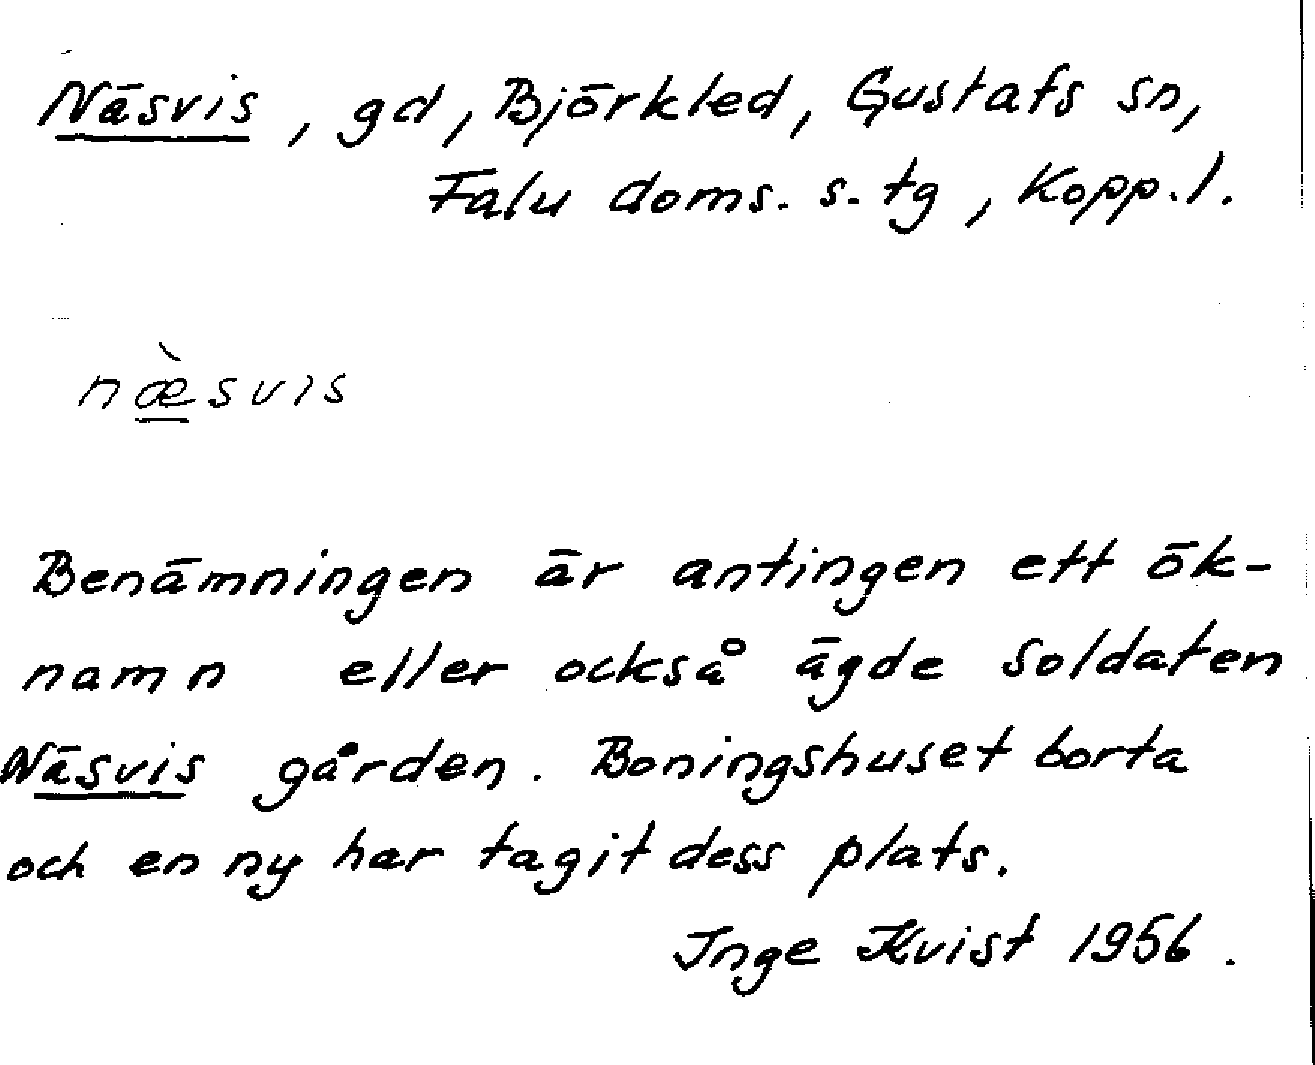 Näsvis, gd, Björkled, Gustafs sn,
Falu doms. s. tg, Kopp. l.
næ̀svis
Benämningen är antingen ett ök-
namn eller också ägde soldaten
Näsvis gården. Boningshuset borta
och en ny har tagit dess plats.
Inge Kvist 1956.